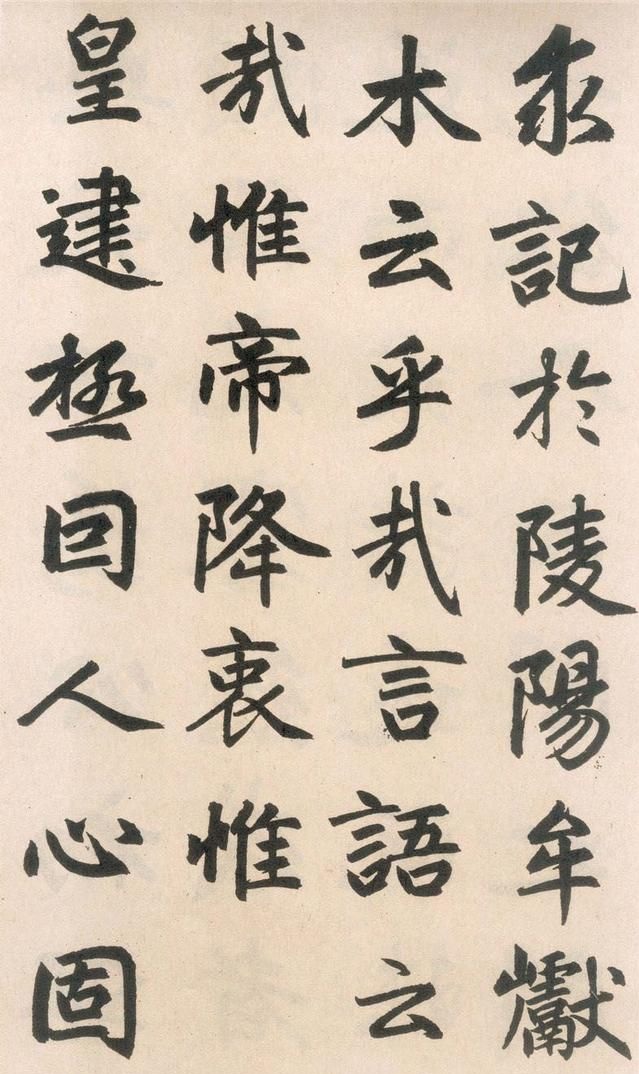 求記於陵陽牟巘
木云乎哉言語云
哉惟帝降衷惟
皇建極囙人心固